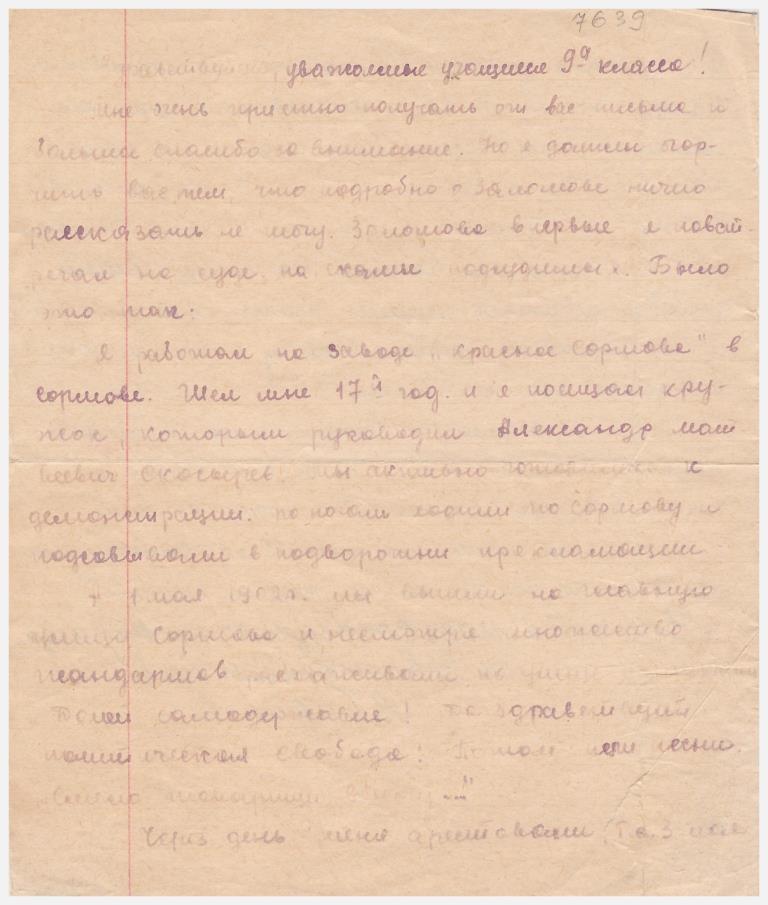 7639
Здравствуйте, уважаемые учащиеся 9а класса!
Мне очень приятно получать от вас письма и
большое спасибо за внимание. Но я должен огор-
чить вас тем, что подробно о Заломове ничего
рассказать не могу. Заломова впервые я повст-
речал на суде, на скамье подсудимых. Было
это так:
Я работал на заводе "Красное Сормово" в
Сормове. Шел мне 17й год. и я посещал кру-
жок, которым руководил Александр Мат-
веевич Скосырев. Мы активно готовились к
демонстрации. по ночам ходили по Сормову и
подсовывали в подворотни прокламации
1 мая 1902г. мы вышли на главную
улицу Сормова и несмотря множество
жандармов по улице
Долой самодержавие! Да здравствует
политическая свобода! Потом пели песни.
"Смело товарищи в ногу..."
Через день меня арестовали, т.е. 3 мая